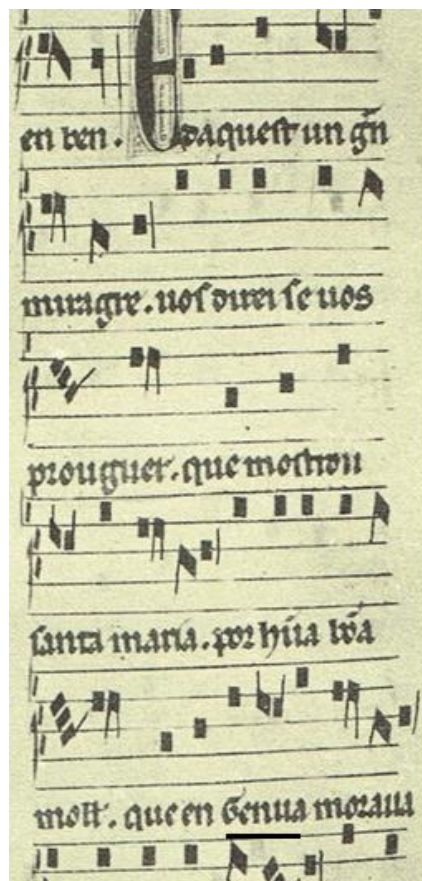 en ben . E daquest un gñ
miragre . uos direi se uos
prouguer . que mostrou
santa maria . por hũa bõa
moller . que en Genua moraua